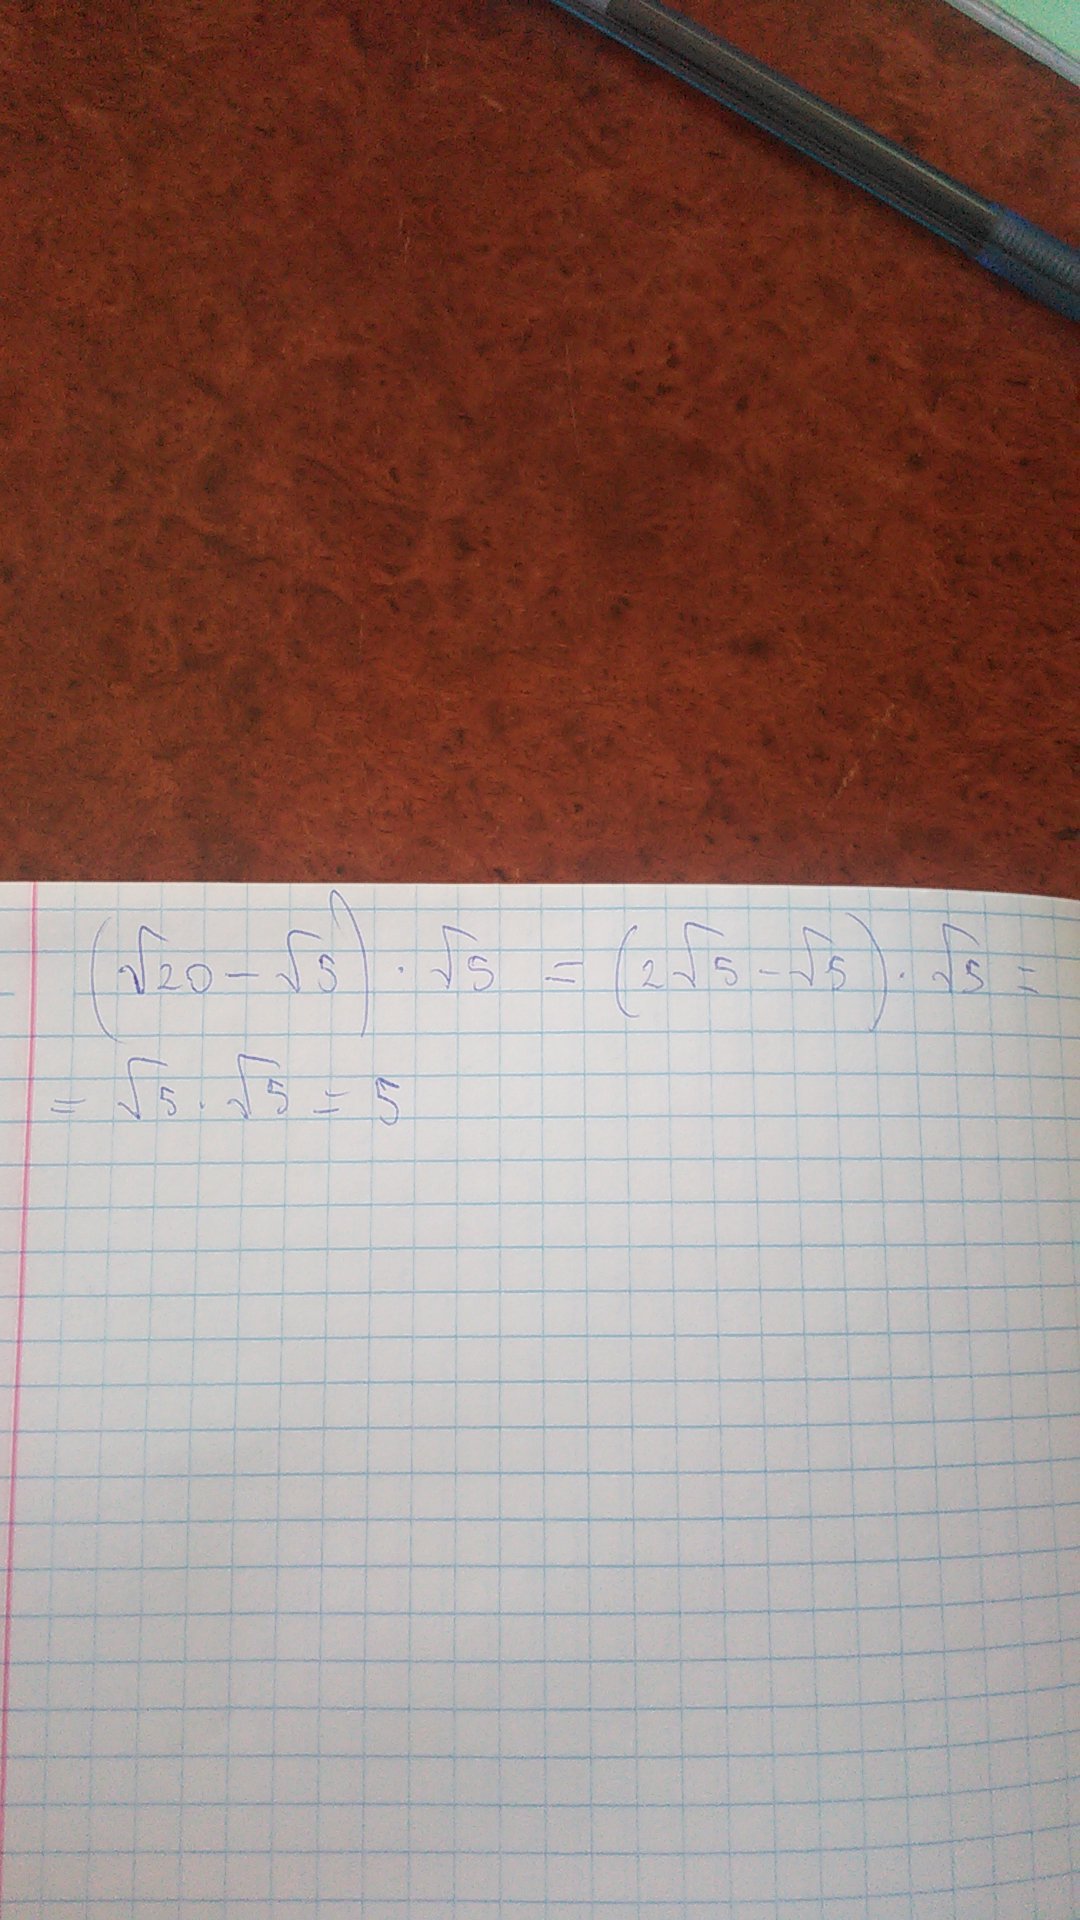 (√20 - √5) · √5 = (2√5 - √5) · √5 =
= √5 · √5 = 5